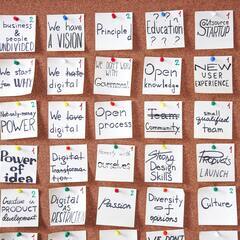 business &
people
UNDIVIDED
2
We have
A VISION
1
Principle
2
Education
???
Outsource
STARTUP
1
We start
from WHY
We hate
digital
1
WE DON'T WORK
WITH
Government!
2
Open
knowledge
2
NEW
USER
EXPERIENCE
1
Not-only-money
POWER
1
We love
digital
1
Open
process
2
Team
Community
1
small
qualified
team
1
Power of
idea
2
Digital
Transforma-
tion
ourselves
Strong
Design
Skills
Projects
LAUNCH
1
Creative in
PRODUCT
development
2
Digital
AS
Passion
2
Diversity
of
opinions
Culture
2